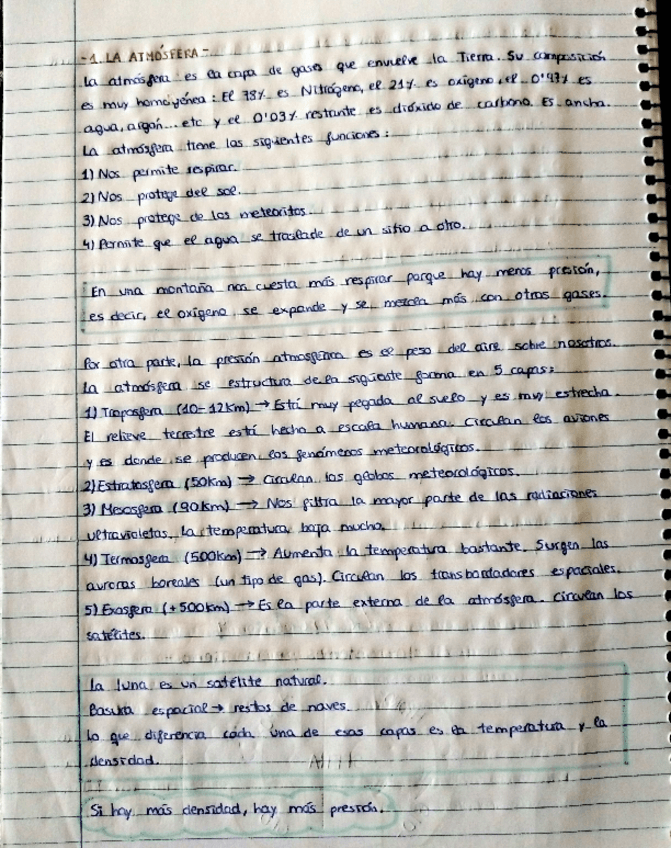 -1. LA ATMÓSFERA-
La atmósfera es la capa de gases que envuelve la Tierra. Su composición
es muy homogénea: El 78% es Nitrógeno, el 21% es oxígeno, el 0'97% es
agua, argón... etc y el 0'03% restante es dióxido de carbono. Es ancha.
La atmósfera tiene las siguientes funciones:
1) Nos permite respirar.
2) Nos protege del sol.
3) Nos protege de los meteoritos.
4) Permite que el agua se traslade de un sitio a otro.
En una montaña nos cuesta más respirar porque hay menos presión,
es decir, el oxígeno se expande y se mezcla más con otros gases.
Por otra parte, la presión atmosférica es el peso del aire sobre nosotros.
La atmósfera se estructura de la siguiente forma en 5 capas:
1) Troposfera (10-12km) → Está muy pegada al suelo y es muy estrecha.
El relieve terrestre está hecho a escala humana. Circulan los aviones
y es donde se producen los fenómenos meteorológicos.
2) Estratosfera (50km) → Circulan los globos meteorológicos.
3) Mesosfera (90km) → Nos filtra la mayor parte de las radiaciones
ultravioletas. La temperatura baja mucho.
4) Termosfera (500km) → Aumenta la temperatura bastante. Surgen las
auroras boreales (un tipo de gas). Circulan los transbordadores espaciales.
5) Exosfera (+500km) → Es la parte externa de la atmósfera. Circulan los
satélites.
La luna es un satélite natural.
Basura espacial → restos de naves.
Lo que diferencia cada una de esas capas es la temperatura y la
densidad.
Si hay más densidad, hay más presión.